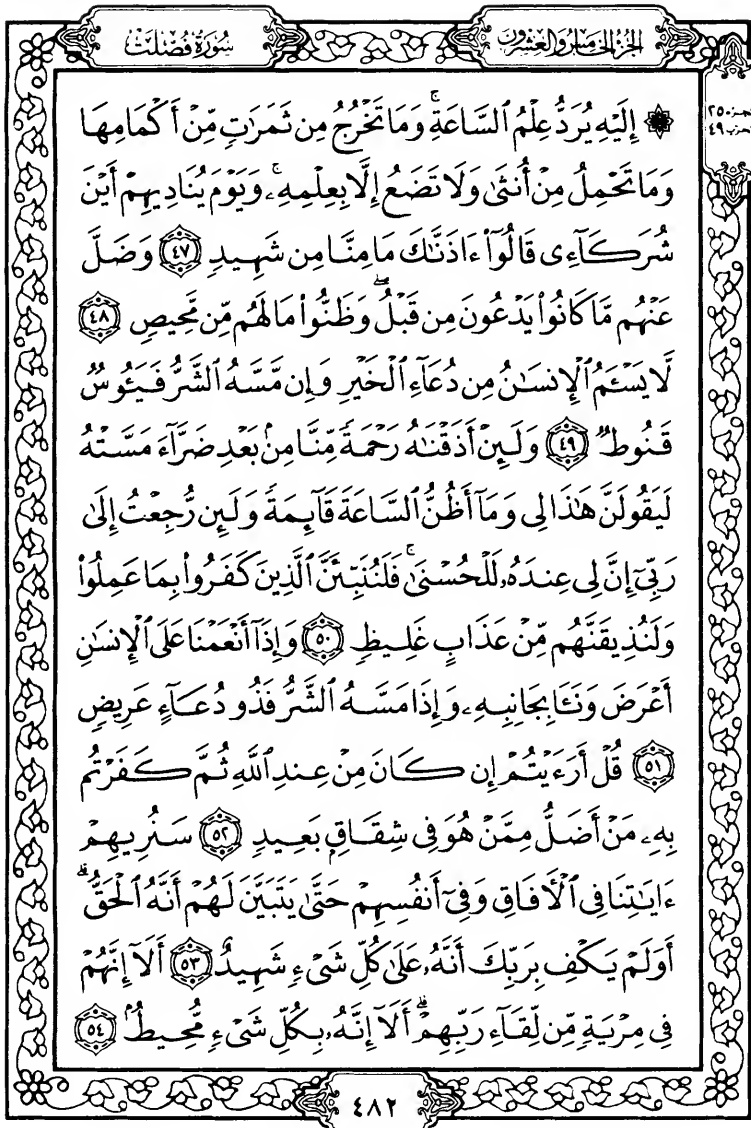 سُورَةُ فُصِّلَتْ
الجُزْءُ الخَامِسُ وَالعِشْرُونَ
الجزء ٢٥
الحزب ٤٩
۞ إِلَيْهِ يُرَدُّ عِلْمُ ٱلسَّاعَةِۚ وَمَا تَخْرُجُ مِن ثَمَرَٰتٍ مِّنْ أَكْمَامِهَا
وَمَا تَحْمِلُ مِنْ أُنثَىٰ وَلَا تَضَعُ إِلَّا بِعِلْمِهِۦۚ وَيَوْمَ يُنَادِيهِمْ أَيْنَ
شُرَكَآءِى قَالُوٓا۟ ءَاذَنَّٰكَ مَا مِنَّا مِن شَهِيدٍ ٤٧ وَضَلَّ
عَنْهُم مَّا كَانُوا۟ يَدْعُونَ مِن قَبْلُۖ وَظَنُّوا۟ مَا لَهُم مِّن مَّحِيصٍ ٤٨
لَّا يَسْـَٔمُ ٱلْإِنسَٰنُ مِن دُعَآءِ ٱلْخَيْرِ وَإِن مَّسَّهُ ٱلشَّرُّ فَيَـُٔوسٌ
قَنُوطٌ ٤٩ وَلَئِنْ أَذَقْنَٰهُ رَحْمَةً مِّنَّا مِنۢ بَعْدِ ضَرَّآءَ مَسَّتْهُ
لَيَقُولَنَّ هَٰذَا لِى وَمَآ أَظُنُّ ٱلسَّاعَةَ قَآئِمَةً وَلَئِن رُّجِعْتُ إِلَىٰ
رَبِّىٓ إِنَّ لِى عِندَهُۥ لَلْحُسْنَىٰۚ فَلَنُنَبِّئَنَّ ٱلَّذِينَ كَفَرُوا۟ بِمَا عَمِلُوا۟
وَلَنُذِيقَنَّهُم مِّنْ عَذَابٍ غَلِيظٍ ٥٠ وَإِذَآ أَنْعَمْنَا عَلَى ٱلْإِنسَٰنِ
أَعْرَضَ وَنَـَٔا بِجَانِبِهِۦ وَإِذَا مَسَّهُ ٱلشَّرُّ فَذُو دُعَآءٍ عَرِيضٍ
٥١ قُلْ أَرَءَيْتُمْ إِن كَانَ مِنْ عِندِ ٱللَّهِ ثُمَّ كَفَرْتُم
بِهِۦ مَنْ أَضَلُّ مِمَّنْ هُوَ فِى شِقَاقٍۭ بَعِيدٍ ٥٢ سَنُرِيهِمْ
ءَايَٰتِنَا فِى ٱلْءَافَاقِ وَفِىٓ أَنفُسِهِمْ حَتَّىٰ يَتَبَيَّنَ لَهُمْ أَنَّهُ ٱلْحَقُّۗ
أَوَلَمْ يَكْفِ بِرَبِّكَ أَنَّهُۥ عَلَىٰ كُلِّ شَىْءٍ شَهِيدٌ ٥٣ أَلَآ إِنَّهُمْ
فِى مِرْيَةٍ مِّن لِّقَآءِ رَبِّهِمْۗ أَلَآ إِنَّهُۥ بِكُلِّ شَىْءٍ مُّحِيطٌۢ ٥٤
٤٨٢